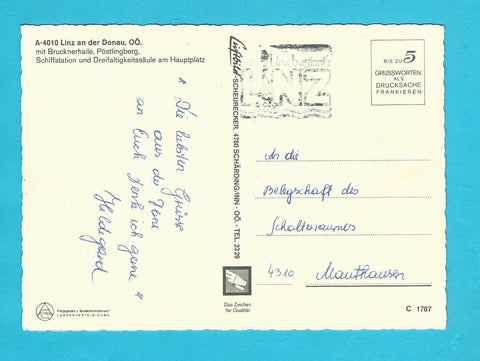 A-4010 Linz an der Donau, OÖ.
mit Brucknerhalle, Pöstlingberg,
Schiffstation und Dreifaltigkeitssäule am Hauptplatz
"Die liebsten Grüsse
aus der Ferne
an Euch denk ich gerne"
Hildegard
Luftbild-SCHEURECKER, 4780 SCHÄRDING/INN - OÖ. - TEL. 2329
LINZ
BIS ZU 5
GRUSSWORTEN
ALS
DRUCKSACHE
FRANKIEREN
An die
Belegschaft des
Schalterraumes
4310 Mauthausen
Das Zeichen
für Qualität
C 1787